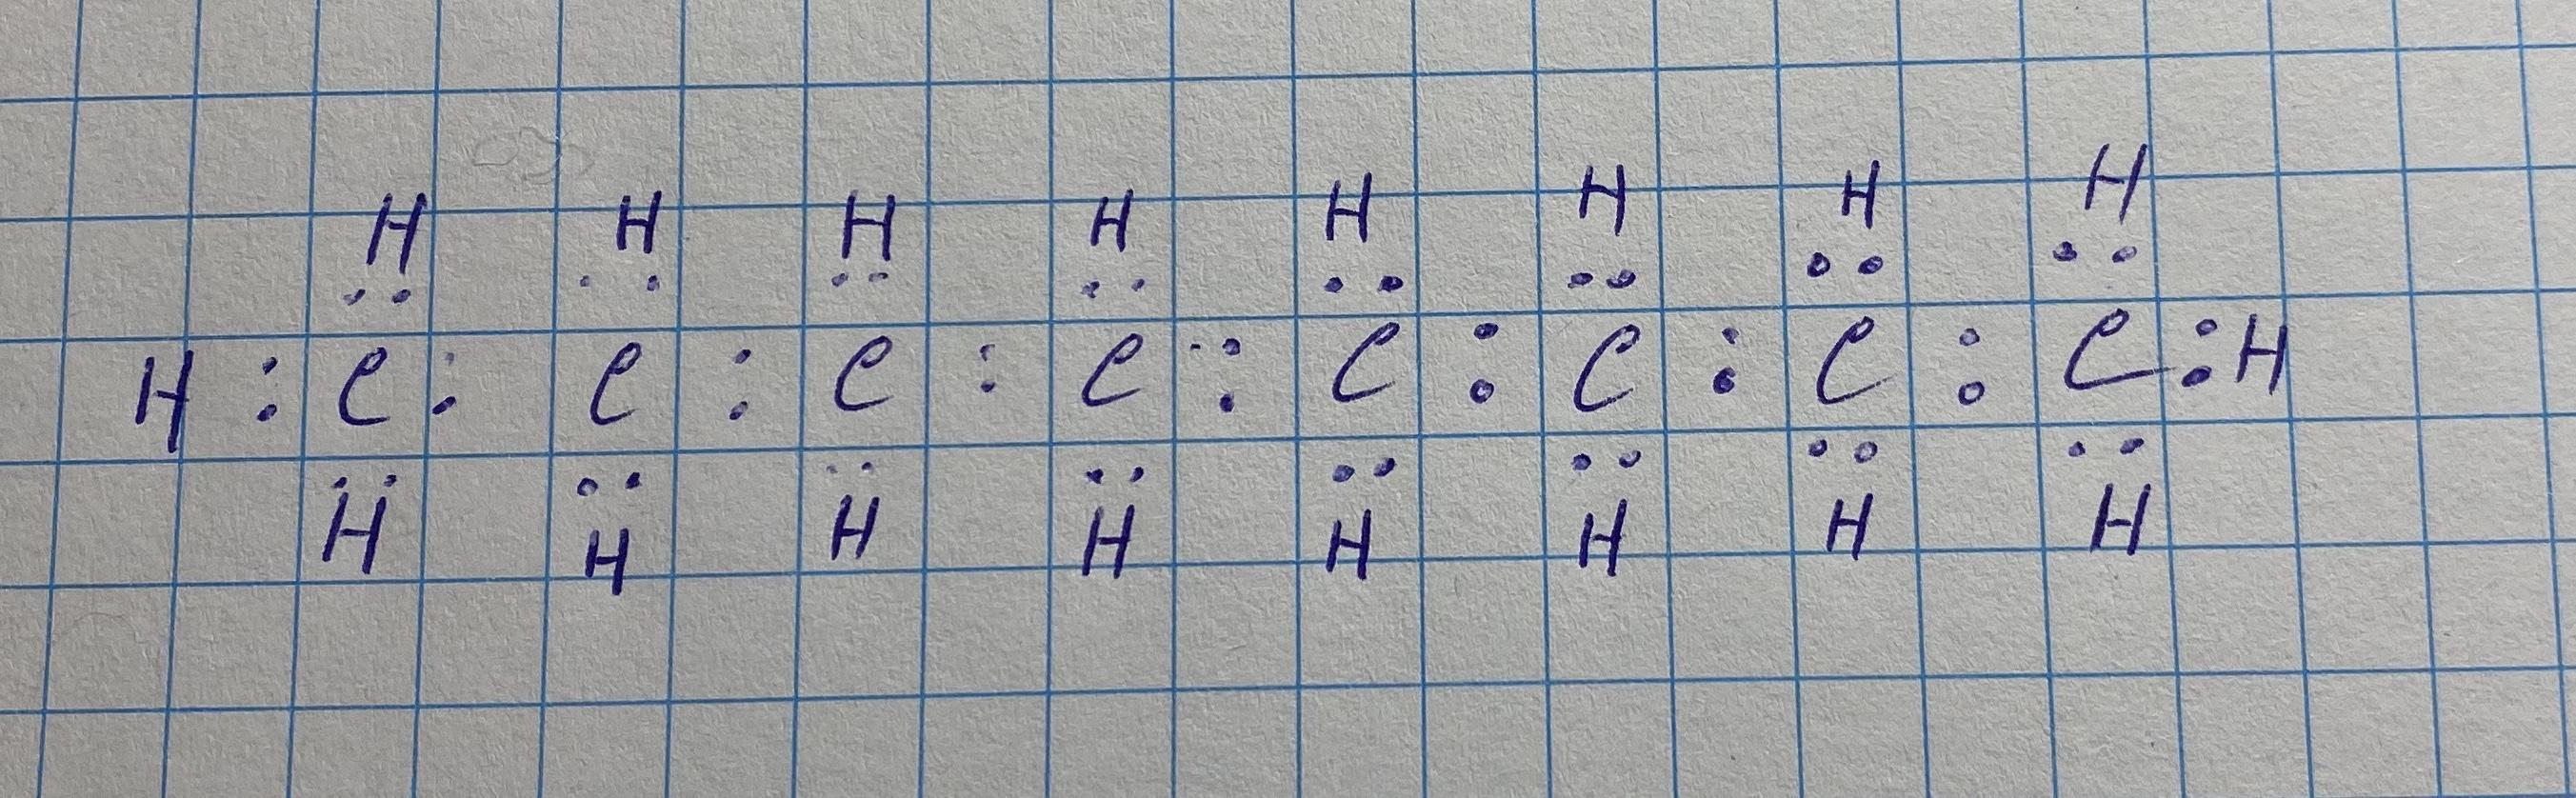 H H H H H H H H
H : C : C : C : C : C : C : C : C : H
H H H H H H H H